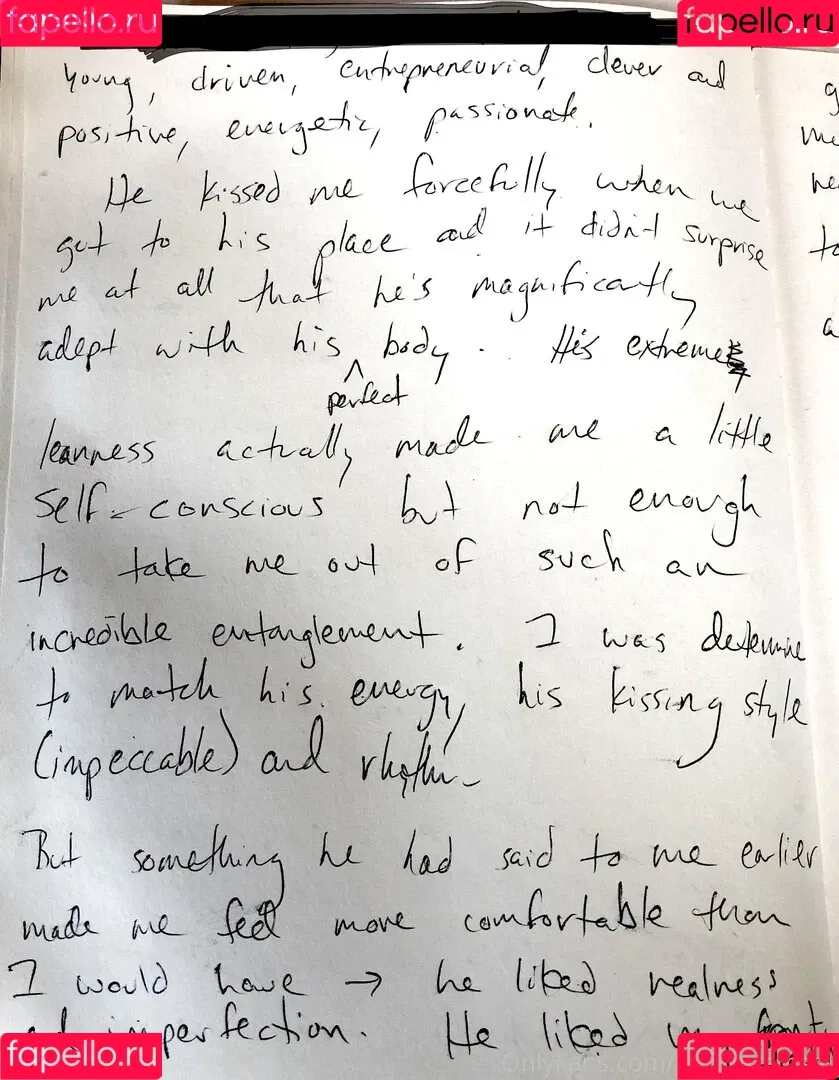 fapello.ru fapello.ru
young, driven, entrepreneurial, clever and
positive, energetic, passionate.
He kissed me forcefully when we
got to his place and it didn't surprise
me at all that he's magnificantly
adept with his body. His extreme
perfect
leanness actually made me a little
self-conscious but not enough
to take me out of such an
incredible entanglement. I was determine
to match his energy, his kissing style
(impeccable) and rhythm.
But something he had said to me earlier
made me feel more comfortable than
I would have → he liked realness
imperfection. He liked
fapello.ru OnlyFans.com fapello.ru